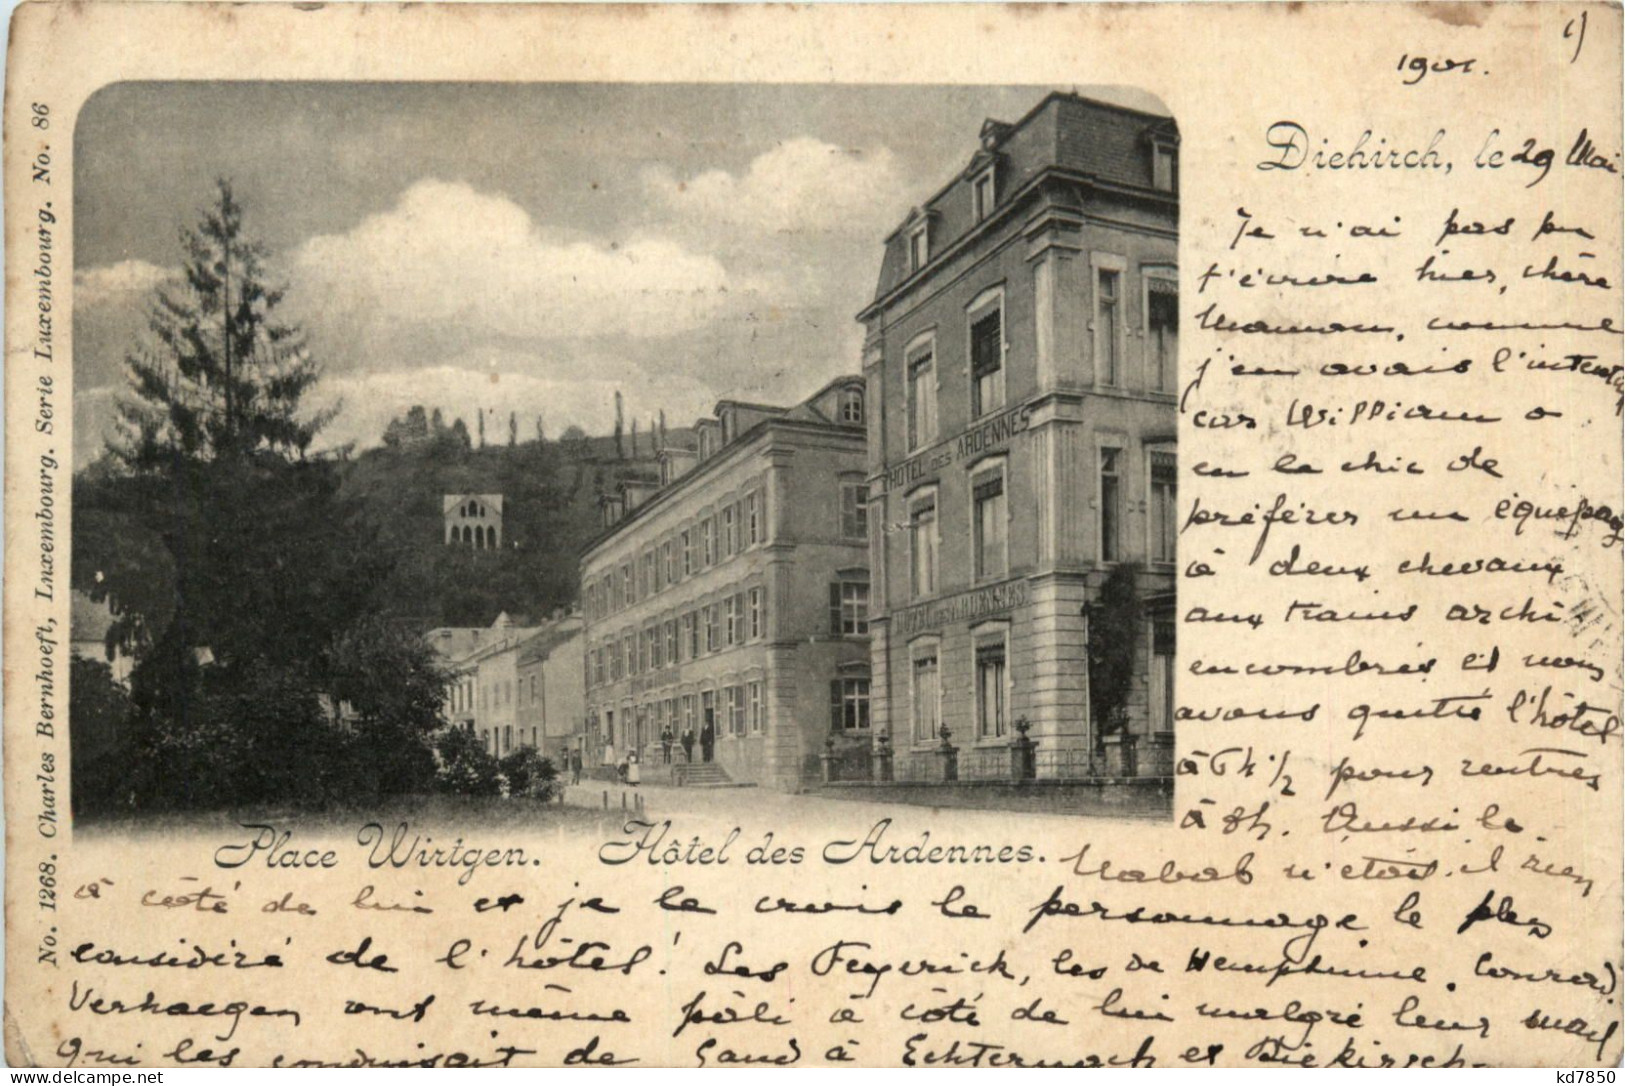 1)
1901.
Diekirch, le 29 Mai
Je n'ai pas pu
t'écrire hier, chère
Maman, comme
j'en avais l'intention
car William a
eu le chic de
préférer un équipage
à deux chevaux
aux trains archi
encombrés et nous
avons quitté l'hôtel
à 6h 1/2 pour rentrer
à 8h. Aussi le
Nabab n'était-il rien
à côté de lui et je le crois le personnage le plus
considéré de l'hôtel! Les Feyerick, les de Hemptinne, Conrad
Verhaegen ont même pâli à côté de lui malgré leur mail
qui les conduisait de Gand à Echternach et Diekirch.
Place Wirtgen. Hôtel des Ardennes.
HÔTEL DES ARDENNES
HÔTEL DES ARDENNES
No. 1268. Charles Bernhoeft, Luxembourg. Serie Luxembourg. No. 86
kd7850